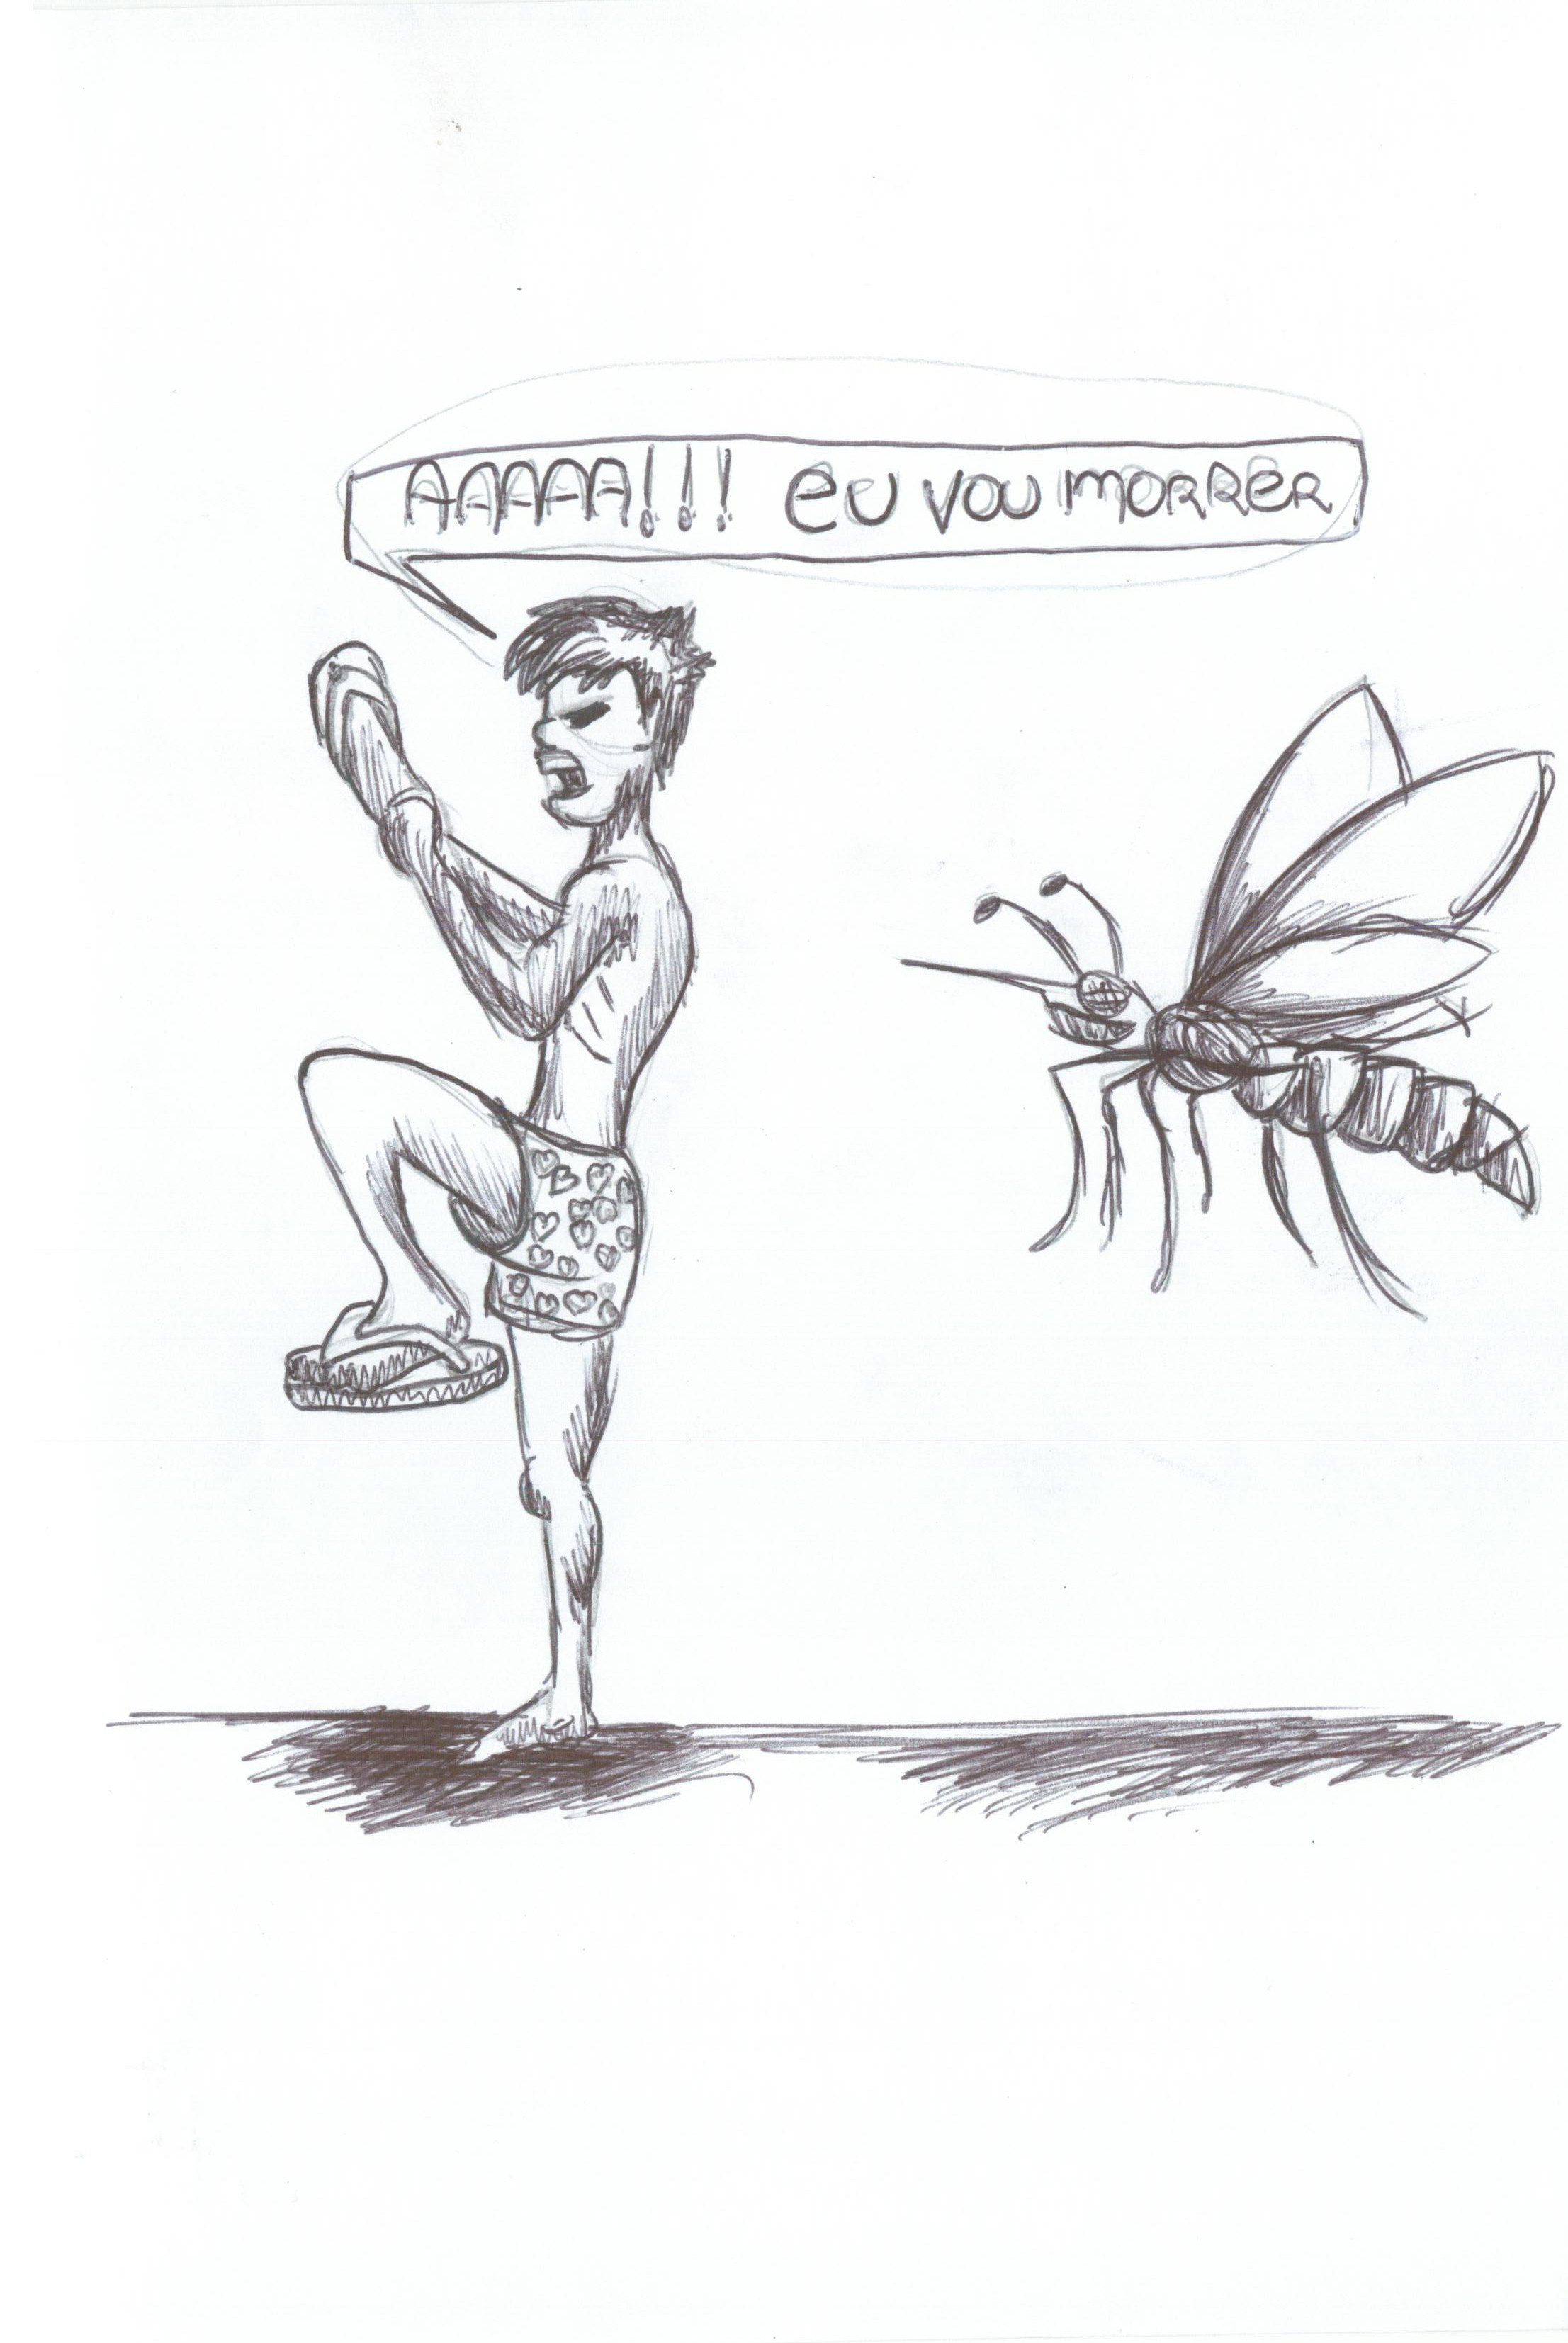 AAAAA!!! eu vou morrer